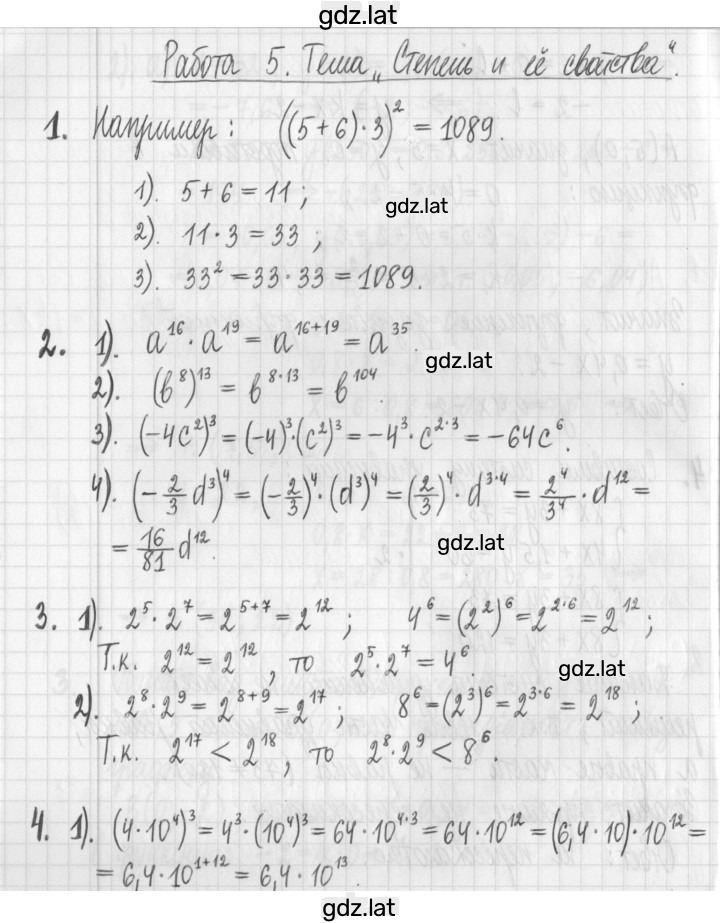 gdz.lat
Работа 5. Тема „Степень и её свойства".
1. Например: ((5+6)·3)² = 1089.
1). 5+6=11;
gdz.lat
2). 11·3=33;
3). 33²=33·33=1089.
2. 1). a¹⁶·a¹⁹ = a¹⁶⁺¹⁹ = a³⁵.
gdz.lat
2). (b⁸)¹³ = b⁸·¹³ = b¹⁰⁴.
3). (-4c²)³ = (-4)³·(c²)³ = -4³·c²·³ = -64c⁶.
4). (-2/3 d³)⁴ = (-2/3)⁴·(d³)⁴ = (2/3)⁴·d³·⁴ = 2⁴/3⁴·d¹² =
= 16/81 d¹².
gdz.lat
3. 1). 2⁵·2⁷ = 2⁵⁺⁷ = 2¹²; 4⁶ = (2²)⁶ = 2²·⁶ = 2¹²;
Т.к. 2¹² = 2¹², то 2⁵·2⁷ = 4⁶.
gdz.lat
2). 2⁸·2⁹ = 2⁸⁺⁹ = 2¹⁷; 8⁶ = (2³)⁶ = 2³·⁶ = 2¹⁸;
Т.к. 2¹⁷ < 2¹⁸, то 2⁸·2⁹ < 8⁶.
4. 1). (4·10⁴)³ = 4³·(10⁴)³ = 64·10⁴·³ = 64·10¹² = (6,4·10)·10¹² =
= 6,4·10¹⁺¹² = 6,4·10¹³.
gdz.lat